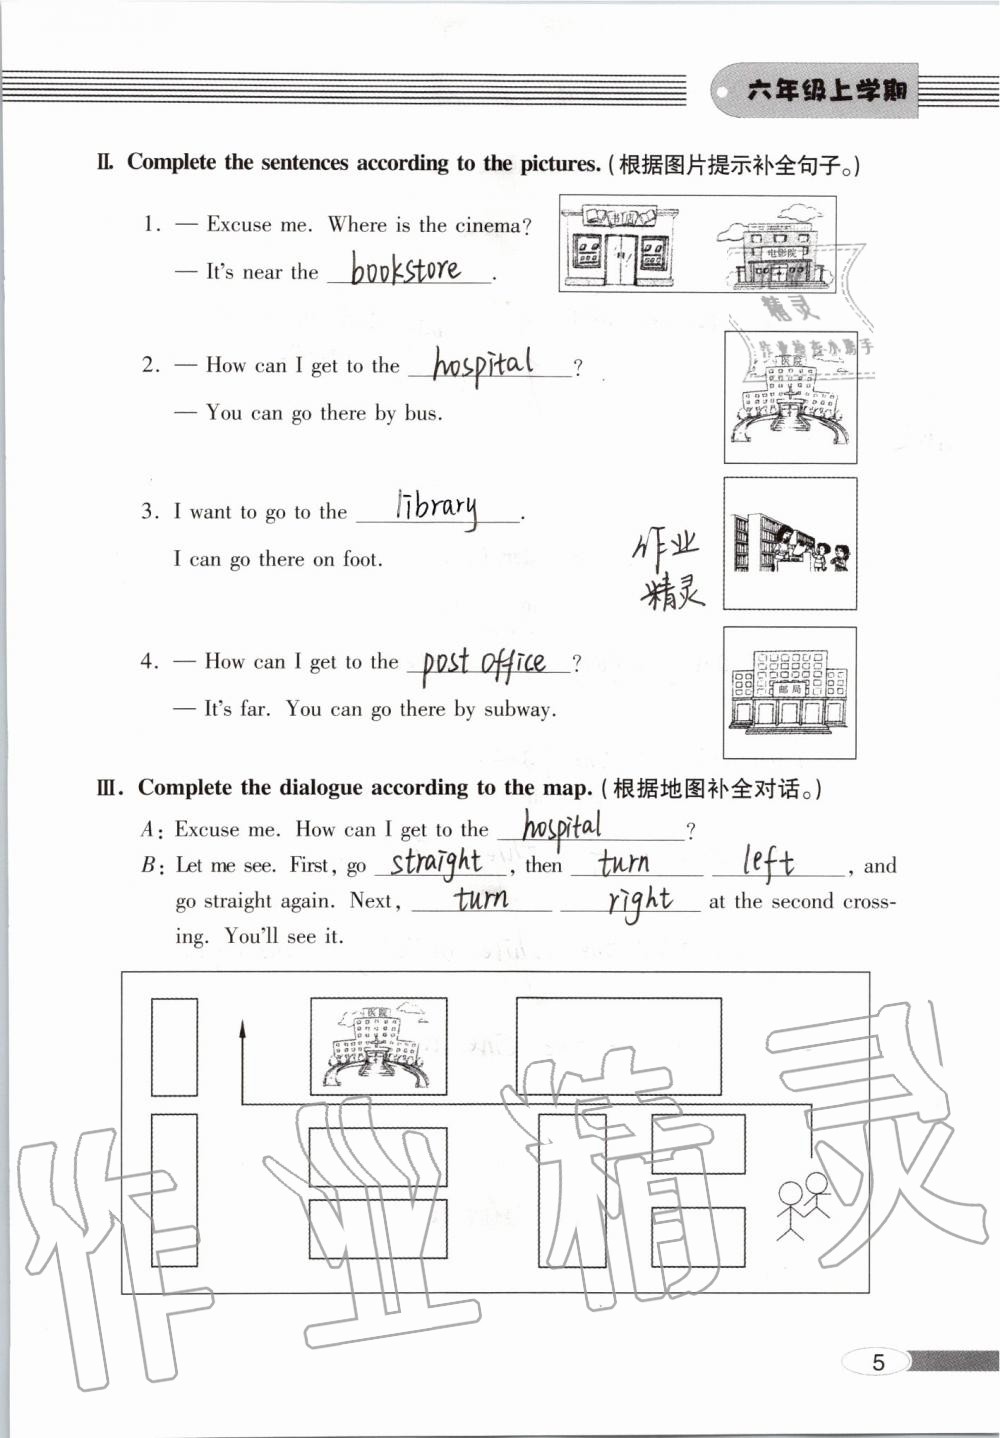 六年级上学期
II. Complete the sentences according to the pictures. (根据图片提示补全句子。)
1. — Excuse me. Where is the cinema?
— It's near the bookstore.
书店
电影院
精灵
作业检查小帮手
2. — How can I get to the hospital?
— You can go there by bus.
医院
3. I want to go to the library.
I can go there on foot.
作业
精灵
4. — How can I get to the post office?
— It's far. You can go there by subway.
邮局
III. Complete the dialogue according to the map. (根据地图补全对话。)
A: Excuse me. How can I get to the hospital?
B: Let me see. First, go straight, then turn left, and
go straight again. Next, turn right at the second cross-
ing. You'll see it.
医院
作业精灵
5